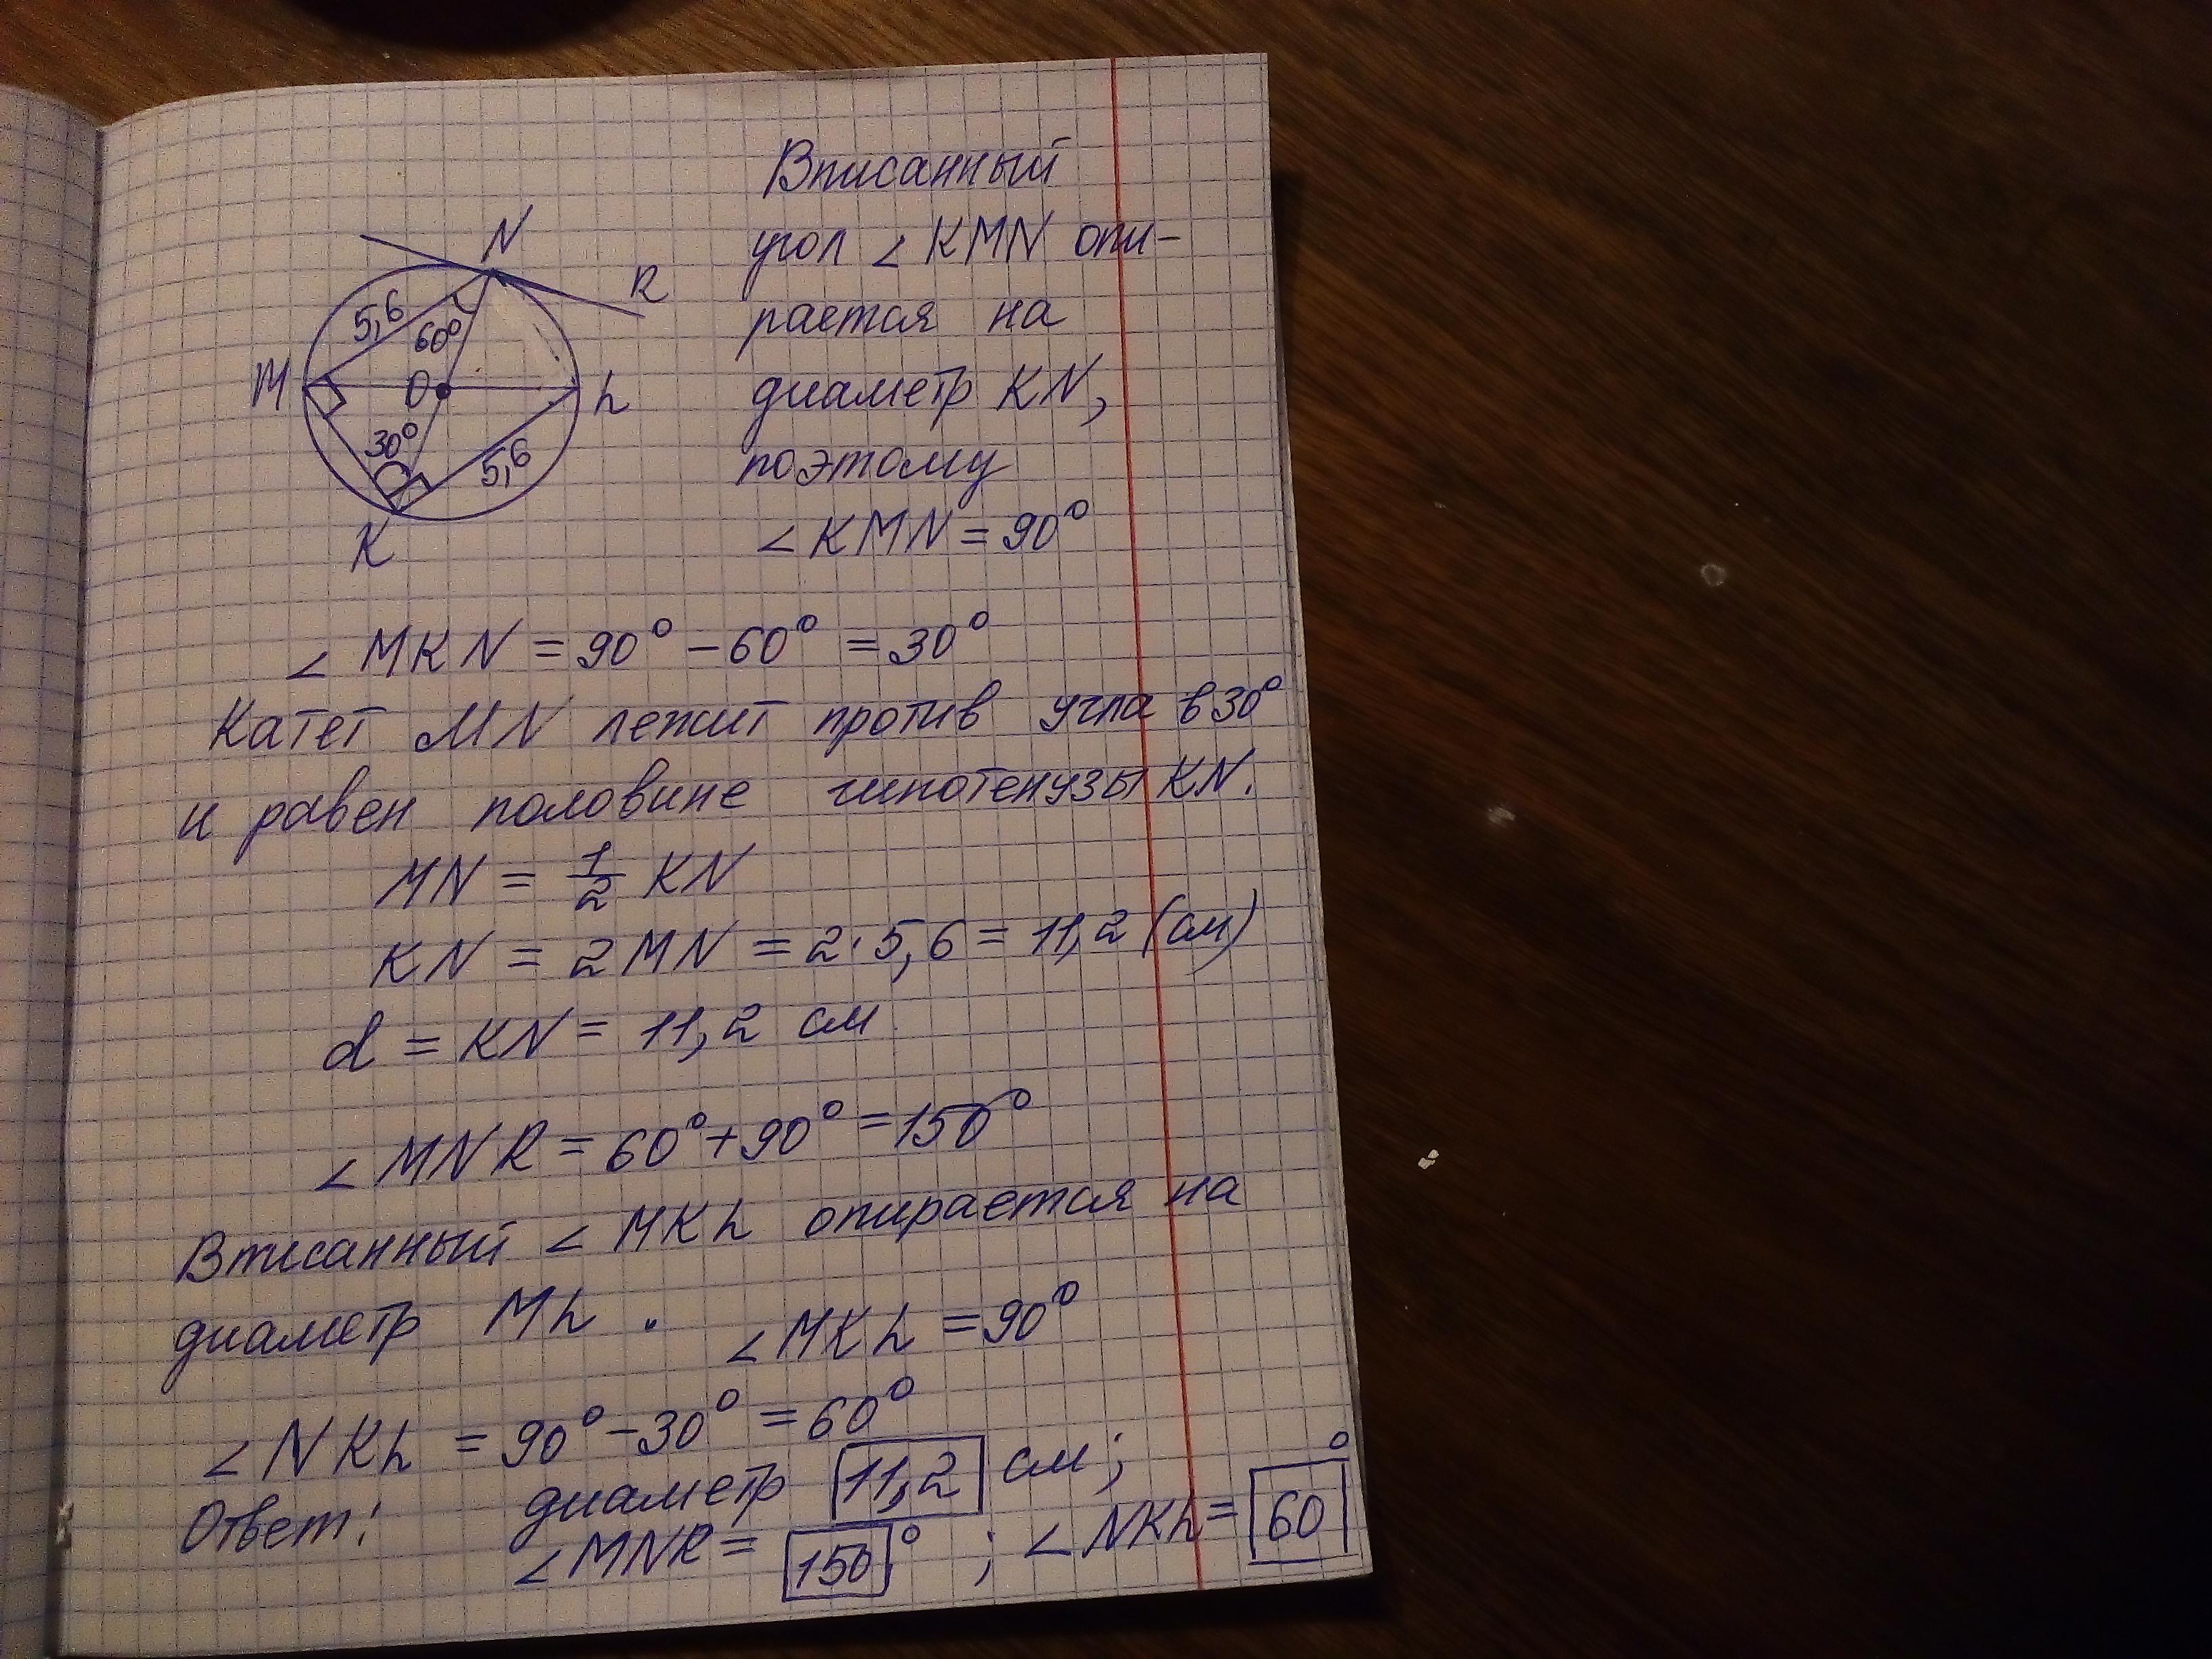 N
R
5,6
60°
M
O
L
30°
5,6
K
Вписанный
угол ∠ KMN опи-
рается на
диаметр KN,
поэтому
∠ KMN = 90°
∠ MKN = 90° - 60° = 30°
Катет MN лежит против угла в 30°
и равен половине гипотенузы KN.
MN = 1/2 KN
KN = 2MN = 2·5,6 = 11,2 (см)
d = KN = 11,2 см.
∠ MNR = 60° + 90° = 150°
Вписанный ∠ MKL опирается на
диаметр ML. ∠ MKL = 90°
∠ NKL = 90° - 30° = 60°
Ответ: диаметр 11,2 см;
∠ MNR = 150°; ∠ NKL = 60°